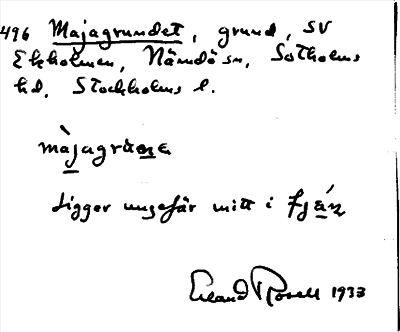 496 Majagrundet, grund, SV
Ekholmen, Nämdö sn, Sotholms
hd. Stockholms l.
màjagrùnε
Ligger ungefär mitt i fjä́ṇ
Erland Rosell 1933